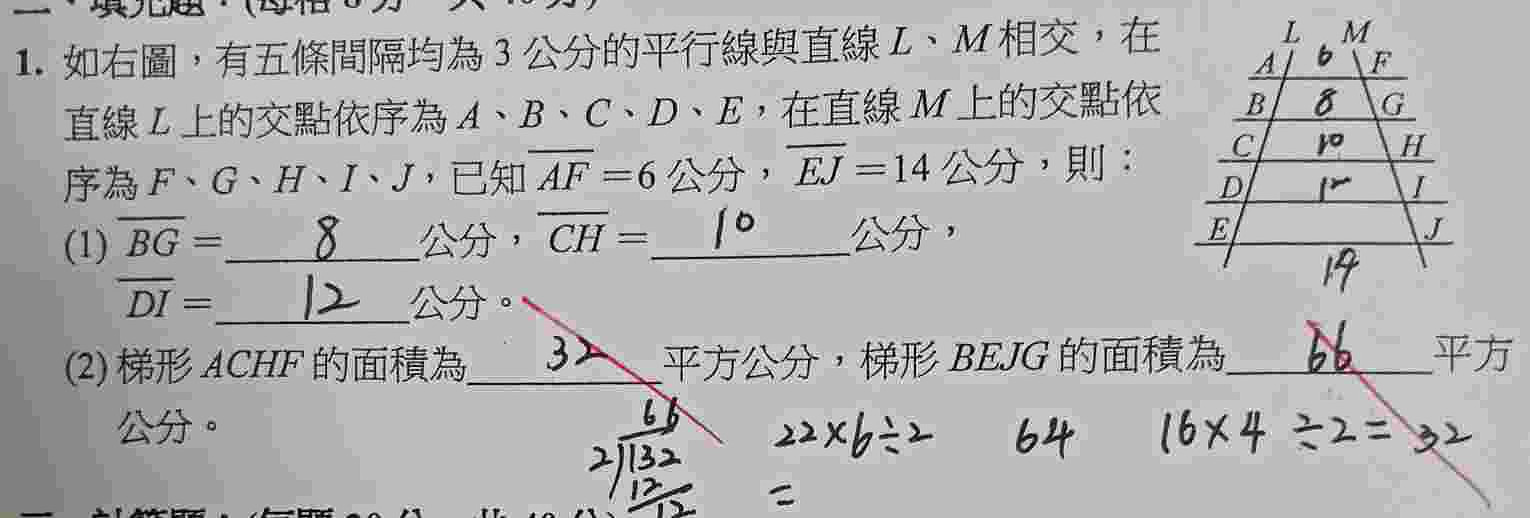 1. 如右圖，有五條間隔均為 3 公分的平行線與直線 L、M 相交，在
直線 L 上的交點依序為 A、B、C、D、E，在直線 M 上的交點依
序為 F、G、H、I、J，已知 AF =6 公分，EJ =14 公分，則：
(1) BG = 8 公分，CH = 10 公分，
DI = 12 公分。
(2) 梯形 ACHF 的面積為 32 平方公分，梯形 BEJG 的面積為 66 平方
公分。
L M
A 6 F
B 8 G
C 10 H
D 12 I
E J
14
66
2)132
12
12
22×6÷2
=
64
16×4÷2=32